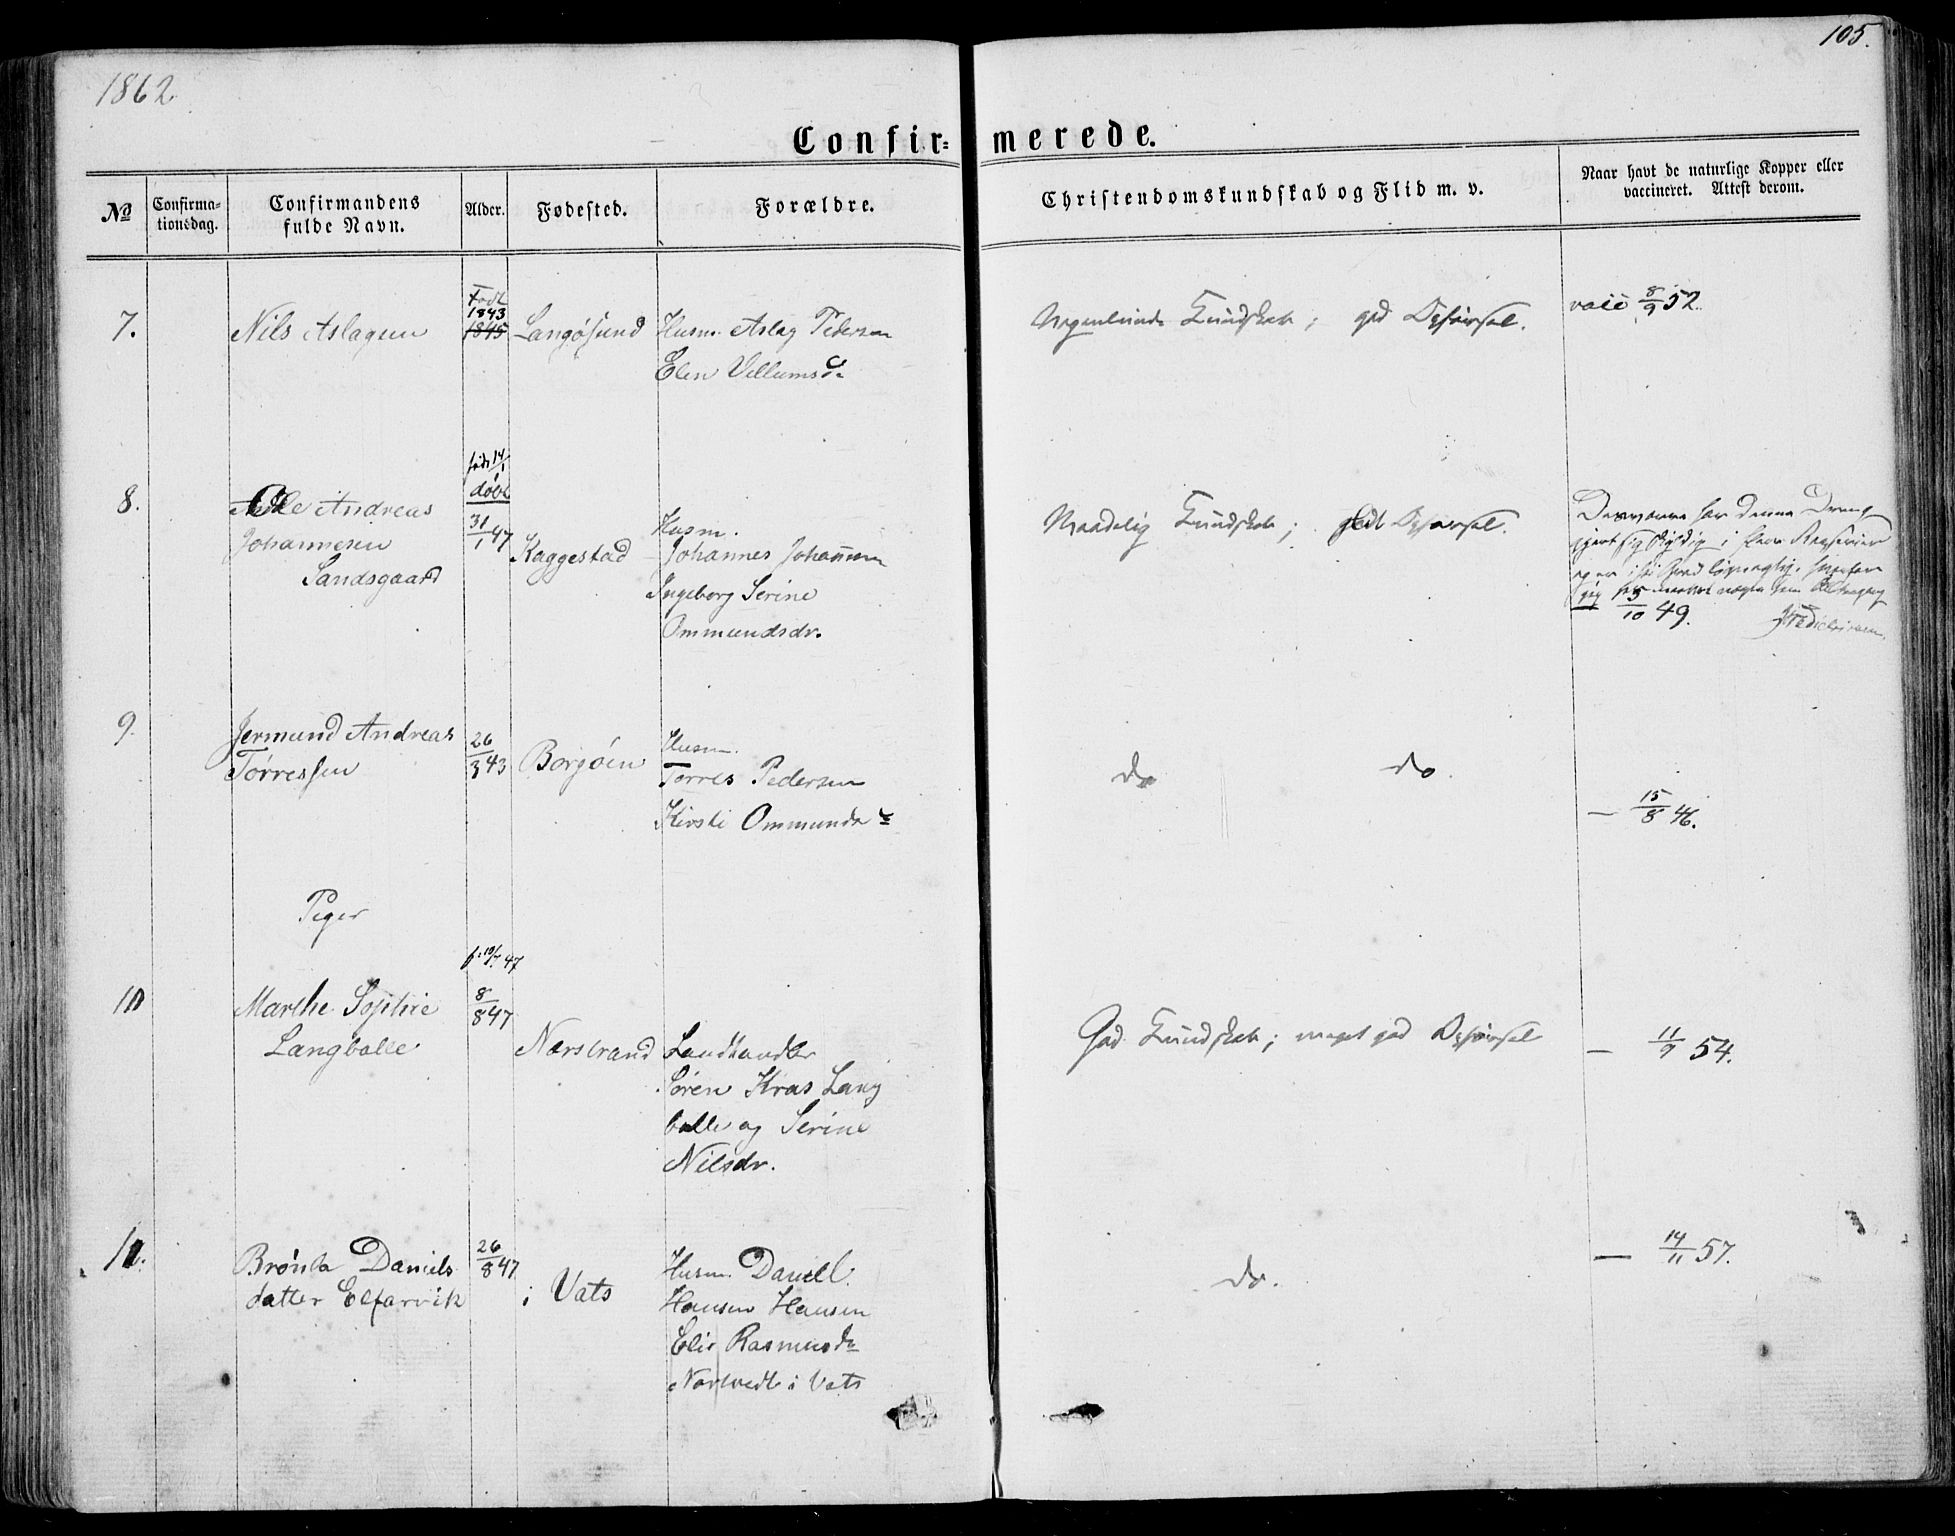 105.
1862
Confir= merede.
No
Confirma-
tionsdag.
Confirmandens
fulde Navn.
Alder.
Fødested.
Forældre.
Christendomskundskab og Flid m. v.
Naar havt de naturlige Kopper eller
vaccineret. Attest derom.
7.
Nils Aslagsen
Født
1843
1845
Langøsund
Husm. Aslag Pedersen
Elen Villumsd.
Kundskab; god Opførsel.
vacc 8/9 52.
8.
Ole Andreas
Johannesen
Sandsgaard
født 14/1
døbt
31/1 47
Kaggestad
Husm.
Johannes Johannesen
Ingeborg Serine
Ommundsdr.
Maadelig Kundskab; godt Opførsel.
Desværre har denne Dreng
gjort sig skyldig i flere
/10 49.
9.
Jermund Andreas
Tørressen
26/3 43
Borgøen
Husm.
Tørres Pedersen
Kirsti Ommunds
do do.
— 15/8 46.
Piger
10
Marthe Sophie
Langballe
f: 10/7 47
8/8 47
Nærstrand
Landhandler
Søren Kras Lang
balle og Serine
Nilsdr.
God Kundskab; meget god Opførsel
— 11/9 54.
11.
Brønla Daniels
datter Elfarvik
26/8 47
i Vats
Husm. Daniel
Hansen Hansen
Elie Rasmusd
i Vats
do.
— 14/11 57.